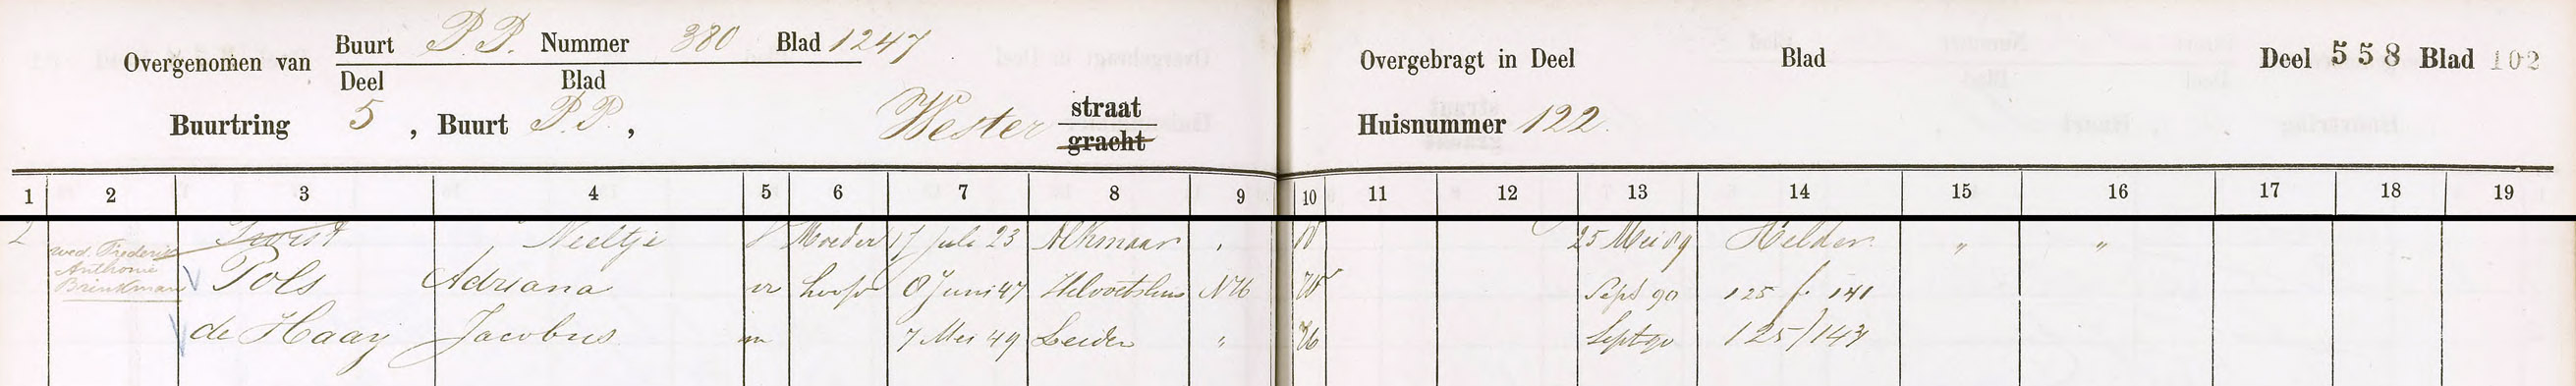 Overgenomen van Buurt P.P. Nummer 380 Blad 1247
Deel Blad
Overgebragt in Deel Blad Deel 558 Blad 102
Buurtring 5, Buurt P.P., Wester straat
gracht
Huisnummer 122.
1 2 3 4 5 6 7 8 9 10 11 12 13 14 15 16 17 18 19
2 Neeltje Moeder 17 Juli 23 Alkmaar 25 Mei 89 Helder " "
wed. Frederik
Anthonie
Brinkman
Pols Adriana vr hoofd 8 Juni 47 Helvoetsluis NH W Sept 90 125 / 141
de Haay Jacobus m 7 Mei 49 Leiden " Sept 90 125/143